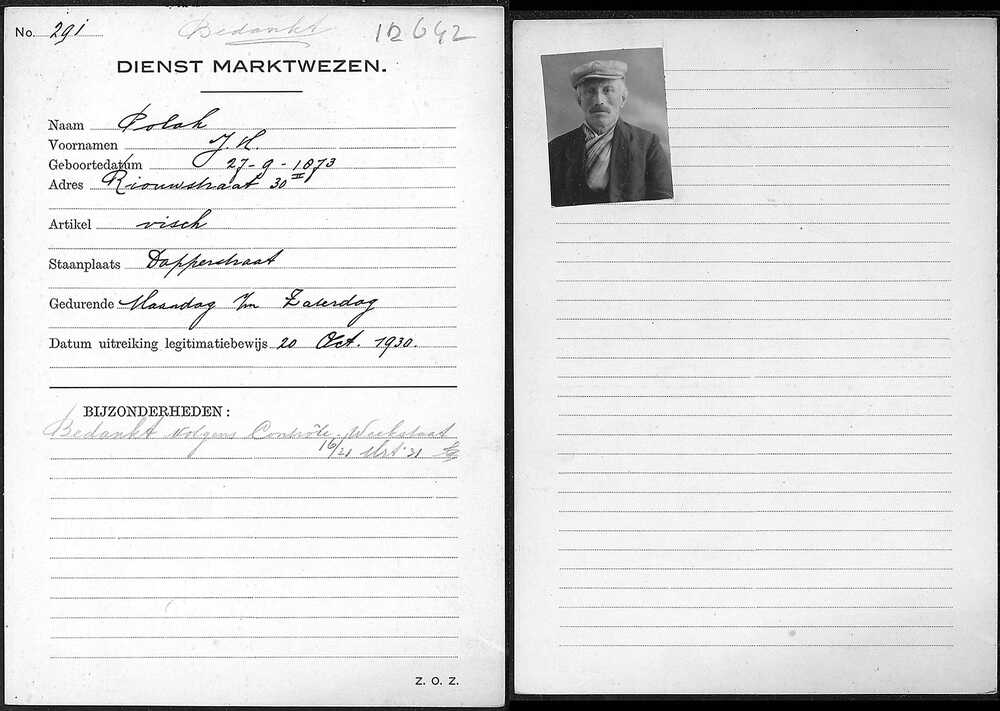 No. 291 Bedankt 12642
DIENST MARKTWEZEN.
Naam Polak
Voornamen J. H.
Geboortedatum 27-9-1873
Adres Riouwstraat 30 II
Artikel visch
Staanplaats Dapperstraat
Gedurende Maandag t/m Zaterdag
Datum uitreiking legitimatiebewijs 20 Oct. 1930.
BIJZONDERHEDEN:
Bedankt volgens Contrôle-Weekstaat
16/21 Mrt '31
Z. O. Z.